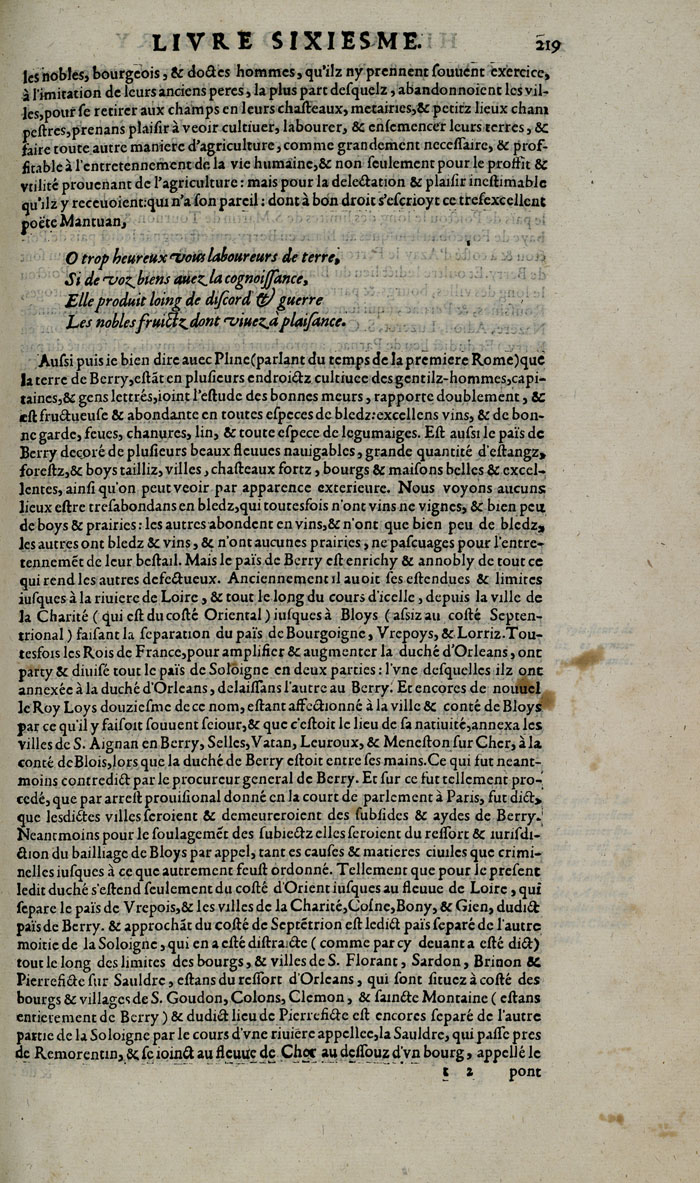 LIVRE SIXIESME. 219
les nobles, bourgeois, & doctes hommes, qu'ilz ny prennent souuent exercice,
à l'imitation de leurs anciens peres, la plus part desquelz, abandonnoient les vil-
les, pour se retirer aux champs en leurs chasteaux, metairies, & petitz lieux cham
pestres, prenans plaisir à veoir cultiuer, labourer, & ensemencer leurs terres, &
faire toute autre maniere d'agriculture, comme grandement necessaire, & prof-
fitable à l'entretennement de la vie humaine, & non seulement pour le proffit &
vtilité prouenant de l'agriculture: mais pour la delectation & plaisir inestimable
qu'ilz y receuoient: qui n'a son pareil: dont à bon droit s'escrioyt ce tresexcellent
poëte Mantuan,
O trop heureux vous laboureurs de terre,
Si de voz biens auez la cognoissance,
Elle produit loing de discord & guerre
Les nobles fruictz dont viuez à plaisance.
Aussi puis ie bien dire auec Pline (parlant du temps de la premiere Rome) que
la terre de Berry, estãt en plusieurs endroictz cultiuee des gentilz-hommes, capi-
taines, & gens lettrés, ioint l'estude des bonnes meurs, rapporte doublement, &
est fructueuse & abondante en toutes especes de bledz: excellens vins, & de bon-
ne garde, feues, chanures, lin, & toute espece de legumaiges. Est aussi le païs de
Berry decoré de plusieurs beaux fleuues nauigables, grande quantité d'estangz,
forestz, & boys tailliz, villes, chasteaux fortz, bourgs & maisons belles & excel-
lentes, ainsi qu'on peut veoir par apparence exterieure. Nous voyons aucuns
lieux estre tresabondans en bledz, qui toutesfois n'ont vins ne vignes, & bien peu
de boys & prairies: les autres abondent en vins, & n'ont que bien peu de bledz,
les autres ont bledz & vins, & n'ont aucunes prairies, ne pascuages pour l'entre-
tennemẽt de leur bestail. Mais le païs de Berry est enrichy & annobly de tout ce
qui rend les autres defectueux. Anciennement il auoit ses estendues & limites
iusques à la riuiere de Loire, & tout le long du cours d'icelle, depuis la ville de
la Charité (qui est du costé Oriental) iusques à Bloys (assiz au costé Septen-
trional) faisant la separation du païs de Bourgoigne, Vrepoys, & Lorriz. Tou-
tesfois les Rois de France, pour amplifier & augmenter la duché d'Orleans, ont
party & diuisé tout le païs de Soloigne en deux parties: l'vne desquelles ilz ont
annexée à la duché d'Orleans, delaissans l'autre au Berry. Et encores de nouuel
le Roy Loys douziesme de ce nom, estant affectionné à la ville & conté de Bloys
par ce qu'il y faisoit souuent seiour, & que c'estoit le lieu de sa natiuité, annexa les
villes de S. Aignan en Berry, Selles, Vatan, Leuroux, & Meneston sur Cher, à la
conté de Blois, lors que la duché de Berry estoit entre ses mains. Ce qui fut neant-
moins contredict par le procureur general de Berry. Et sur ce fut tellement pro-
cedé, que par arrest prouisional donné en la court de parlement à Paris, fut dict,
que lesdictes villes seroient & demeureroient des subsides & aydes de Berry.
Neantmoins pour le soulagemẽt des subiectz elles seroient du ressort & iurisdi-
ction du bailliage de Bloys par appel, tant es causes & matieres ciuiles que crimi-
nelles iusques à ce que autrement feust ordonné. Tellement que pour le present
ledit duché s'estend seulement du costé d'Orient iusques au fleuue de Loire, qui
separe le païs de Vrepois, & les villes de la Charité, Cosne, Bony, & Gien, dudict
païs de Berry. & approchãt du costé de Septẽtrion est ledict païs separé de l'autre
moitie de la Soloigne, qui en a esté distraicte (comme par cy deuant a esté dict)
tout le long des limites des bourgs, & villes de S. Florant, Sardon, Brinon &
Pierreficte sur Sauldre, estans du ressort d'Orleans, qui sont situez à costé des
bourgs & villages de S. Goudon, Colons, Clemon, & saincte Montaine (estans
entierement de Berry) & dudict lieu de Pierreficte est encores separé de l'autre
partie de la Soloigne par le cours d'vne riuiere appellee, la Sauldre, qui passe pres
de Remorentin, & se ioinct au fleuue de Cher au dessouz d'vn bourg, appellé le
2 pont